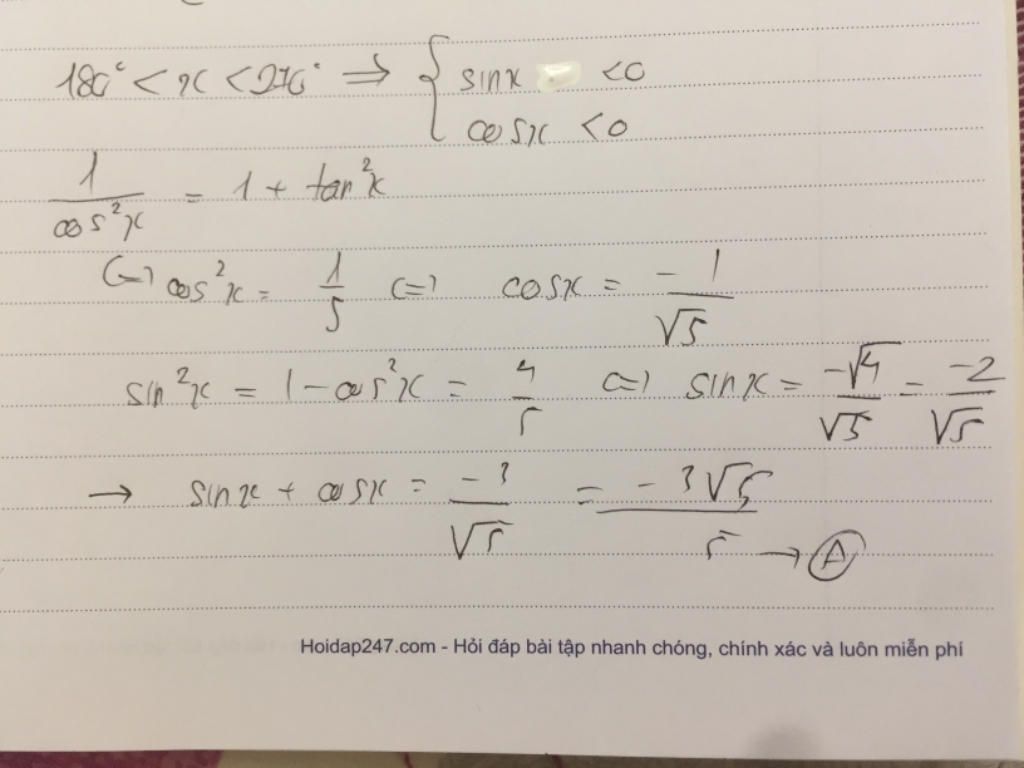 180° < x < 270° ⇒ { sinx < 0
cosx < 0
1/cos²x = 1 + tan²x
(=) cos²x = 1/5 (=) cosx = -1/√5
sin²x = 1 - cos²x = 4/5 (=) sinx = -√4/√5 = -2/√5
→ sinx + cosx = -3/√5 = -3√5/5 → A
Hoidap247.com - Hỏi đáp bài tập nhanh chóng, chính xác và luôn miễn phí